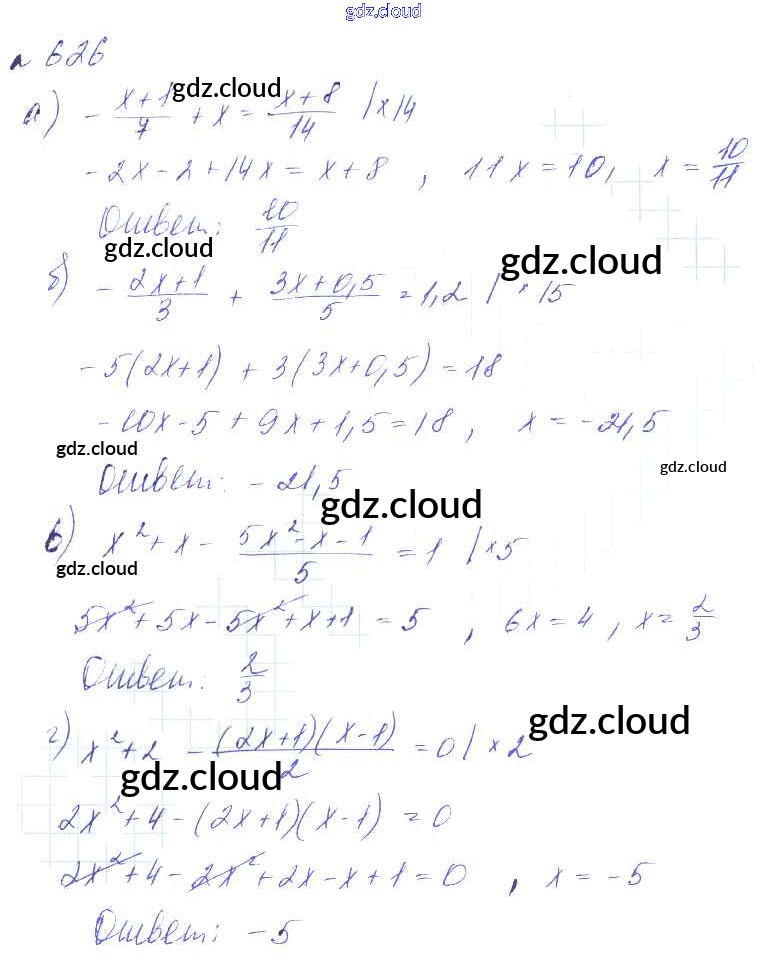 gdz.cloud
№ 626
gdz.cloud
а) - (x+1)/7 + x = (x+8)/14 |×14
-2x-2+14x = x+8, 11x=10, x = 10/11
Ответ: 10/11
gdz.cloud
gdz.cloud
б) - (2x+1)/3 + (3x+0,5)/5 = 1,2 | × 15
-5(2x+1) + 3(3x+0,5) = 18
-10x-5+9x+1,5=18, x = -21,5
gdz.cloud
gdz.cloud
Ответ: -21,5
gdz.cloud
в) x²+x - (5x²-x-1)/5 = 1 |×5
gdz.cloud
5x²+5x-5x²+x+1 = 5, 6x=4, x=2/3
Ответ: 2/3
gdz.cloud
г) x²+2 - (2x+1)(x-1)/2 = 0 | × 2
gdz.cloud
2x²+4-(2x+1)(x-1) = 0
2x²+4-2x²+2x-x+1=0, x = -5
Ответ: -5